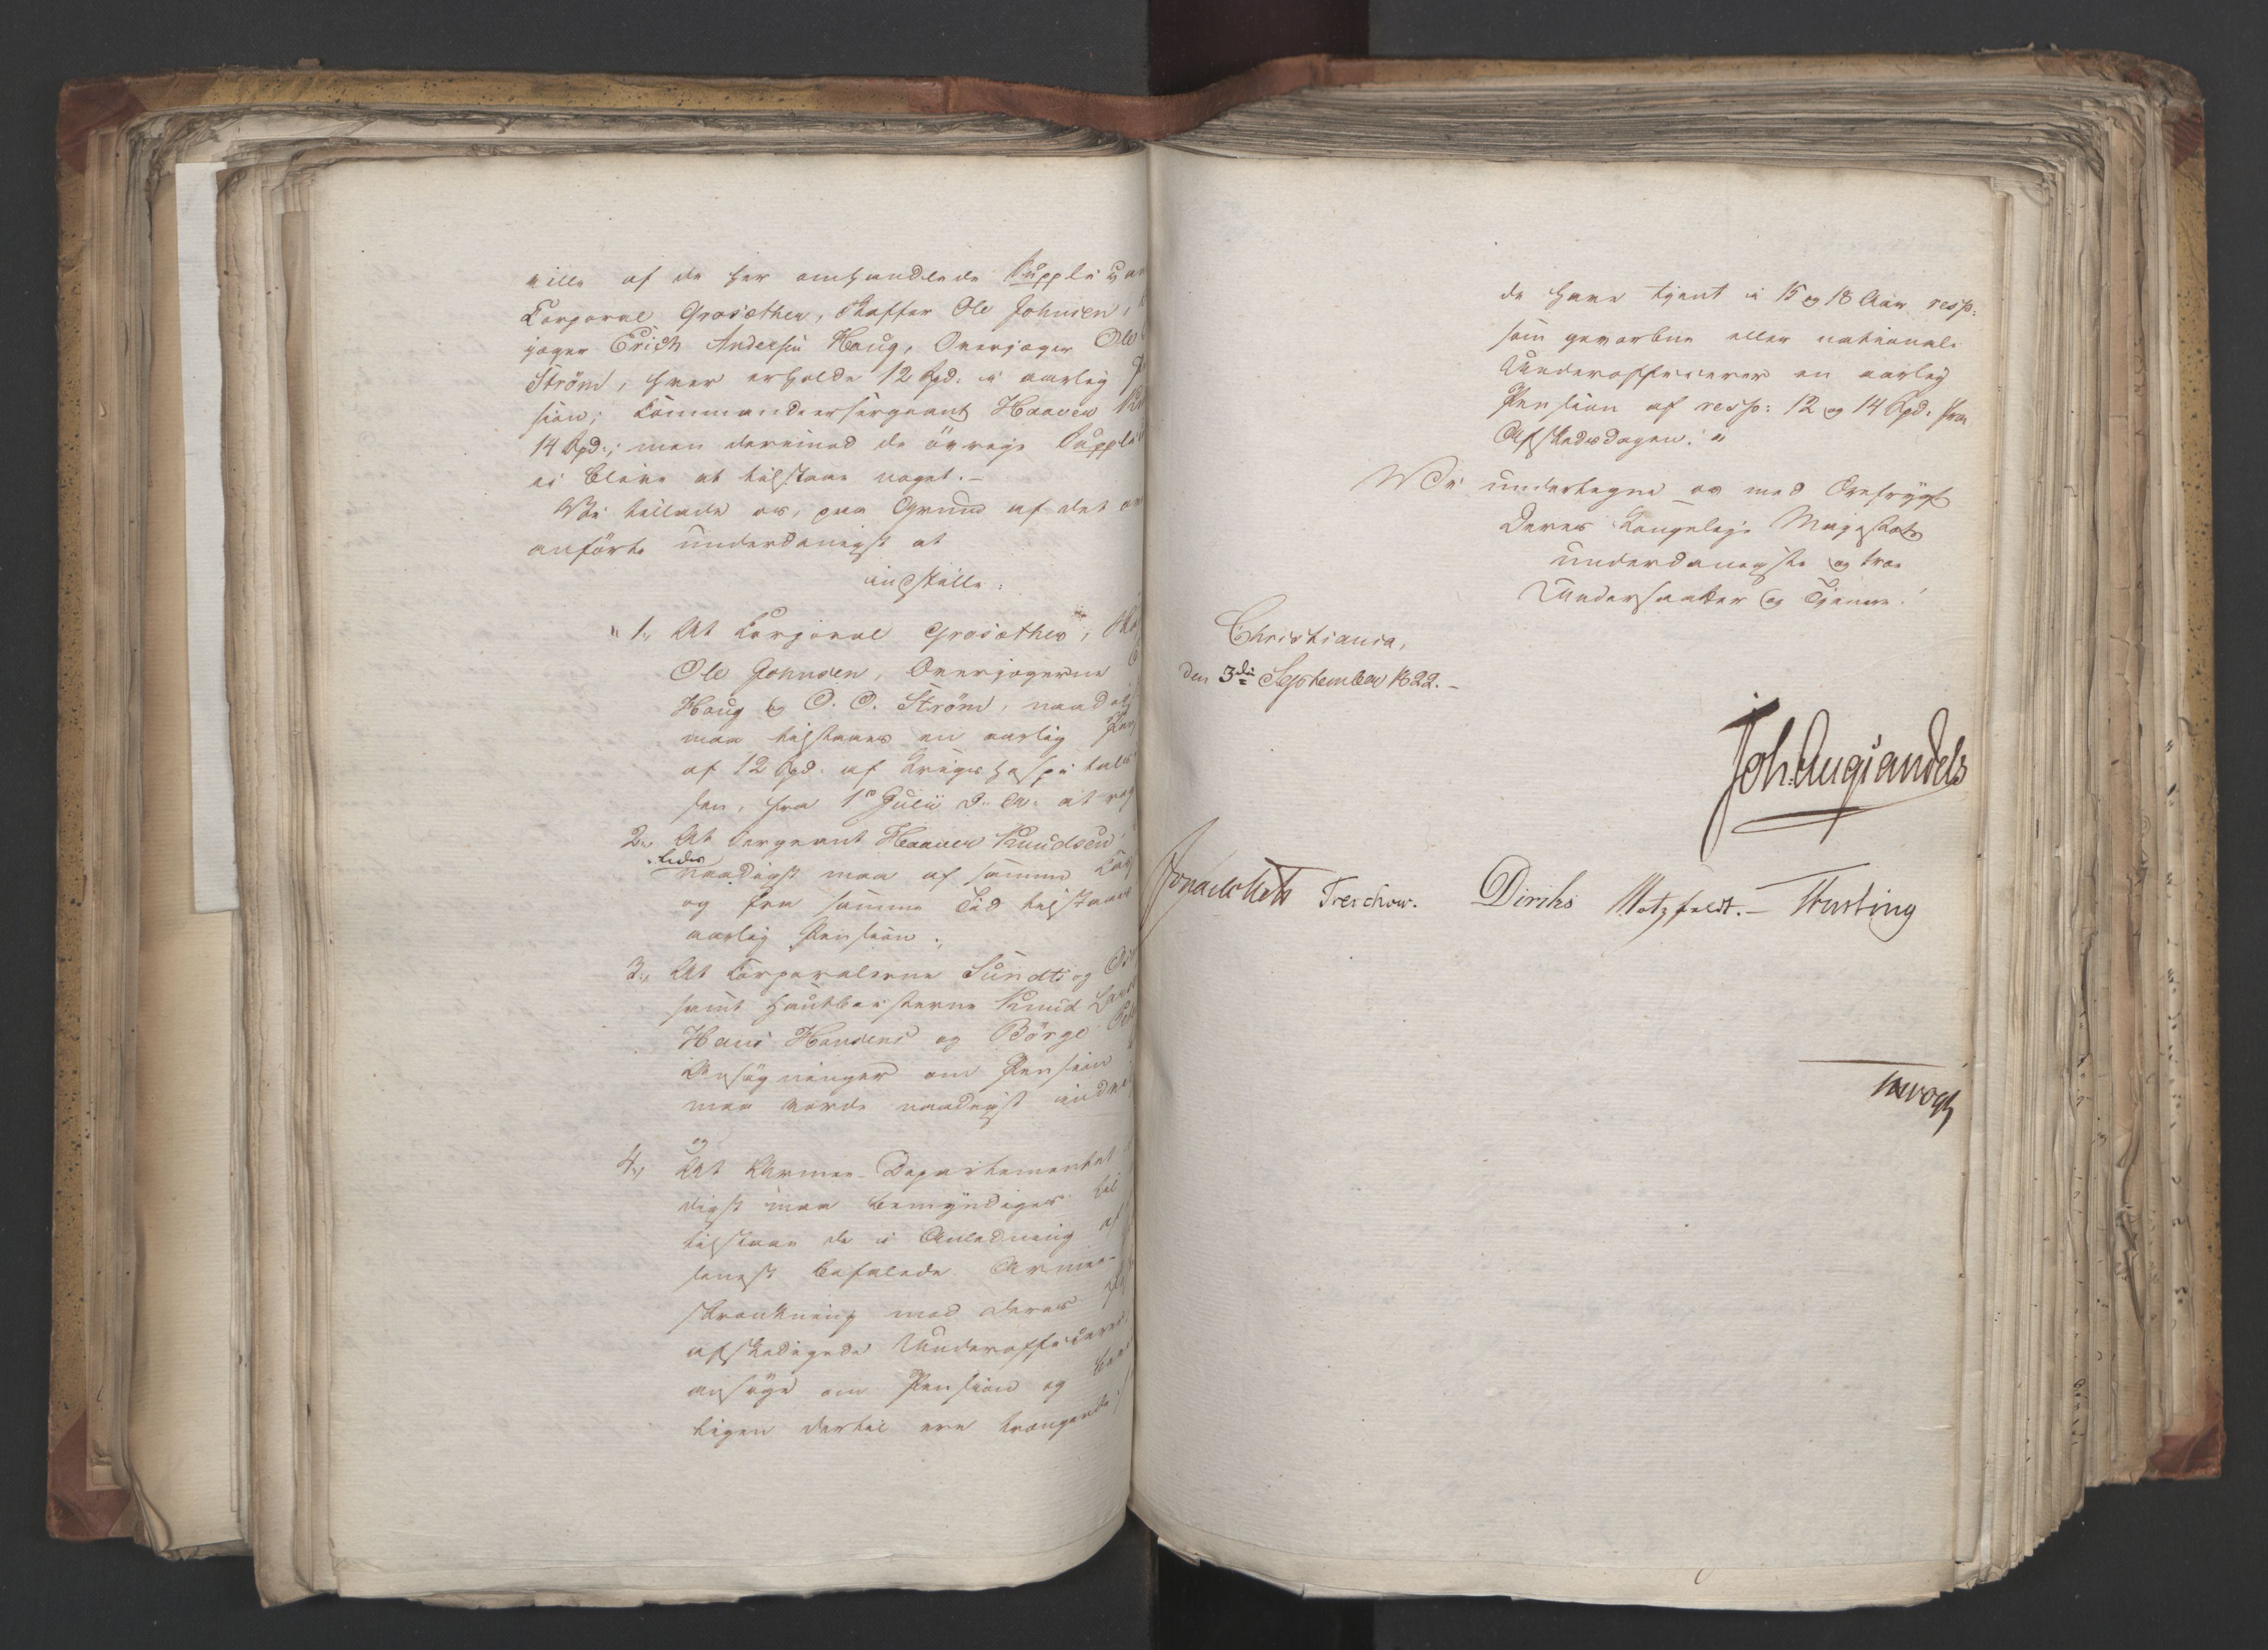 ville af de her omhandlede Suppli
Corporal Grosæther, Staffer Ole Johnsen,
jæger Erich Andersen Haug, Overjæger Ole
Ström, hver erholde 12 Spd. i aarlig
sion; Commandeersergeant Haaven
14 Spd.; men derimod de övrige Suppli
ei blive at tilstaae noget.-
Vi tillade os, paa Grund af det
anförte underdanigst at
indstille:
"1., At Corporal Grosæther,
Ole Johnsen, Overjægerne
Haug og O. O. Ström, naadigst
maa tilstaaes en aarlig Pen
af 12 Spd. af Krigshospitals
sen, fra 1ste Julii d. A. at reg
2., At Sergeant Haaven Knudsen
naadigst maa af samme Cas
og fra samme Tid tilstaaes
aarlig Pension.,
3., At Corporalerne Sundt og
samt Hautboisterne Knud
Hans Hansens og Börge
Ansögninger om Pension
maa vorde naadigst
og
4., At Armee-Departementet
digst maa bemyndiges til
tilstaae de i Anledning af
senest befalede Armee-
skrænkning med deres
afskedigede Underofficerer,
ansöge om Pension og
tigen dertil ere trængende,
de have tjent i 15 og 18 Aar resp:
som gevorbne eller nationale
Underofficerer en aarlig
Pension af resp: 12 og 14 Spd. fra
Afskedsdagen."
Vi undertegne os med Ærefrygt
Deres Kongelige Majestæts
underdanigste og troe
Undersaatter og Tjenere.
Christiania,
den 3die September 1822.-
Joh. Aug. Sandels
Jonas Collett Treschow. Diriks Motzfeldt.- Fasting
Vogt